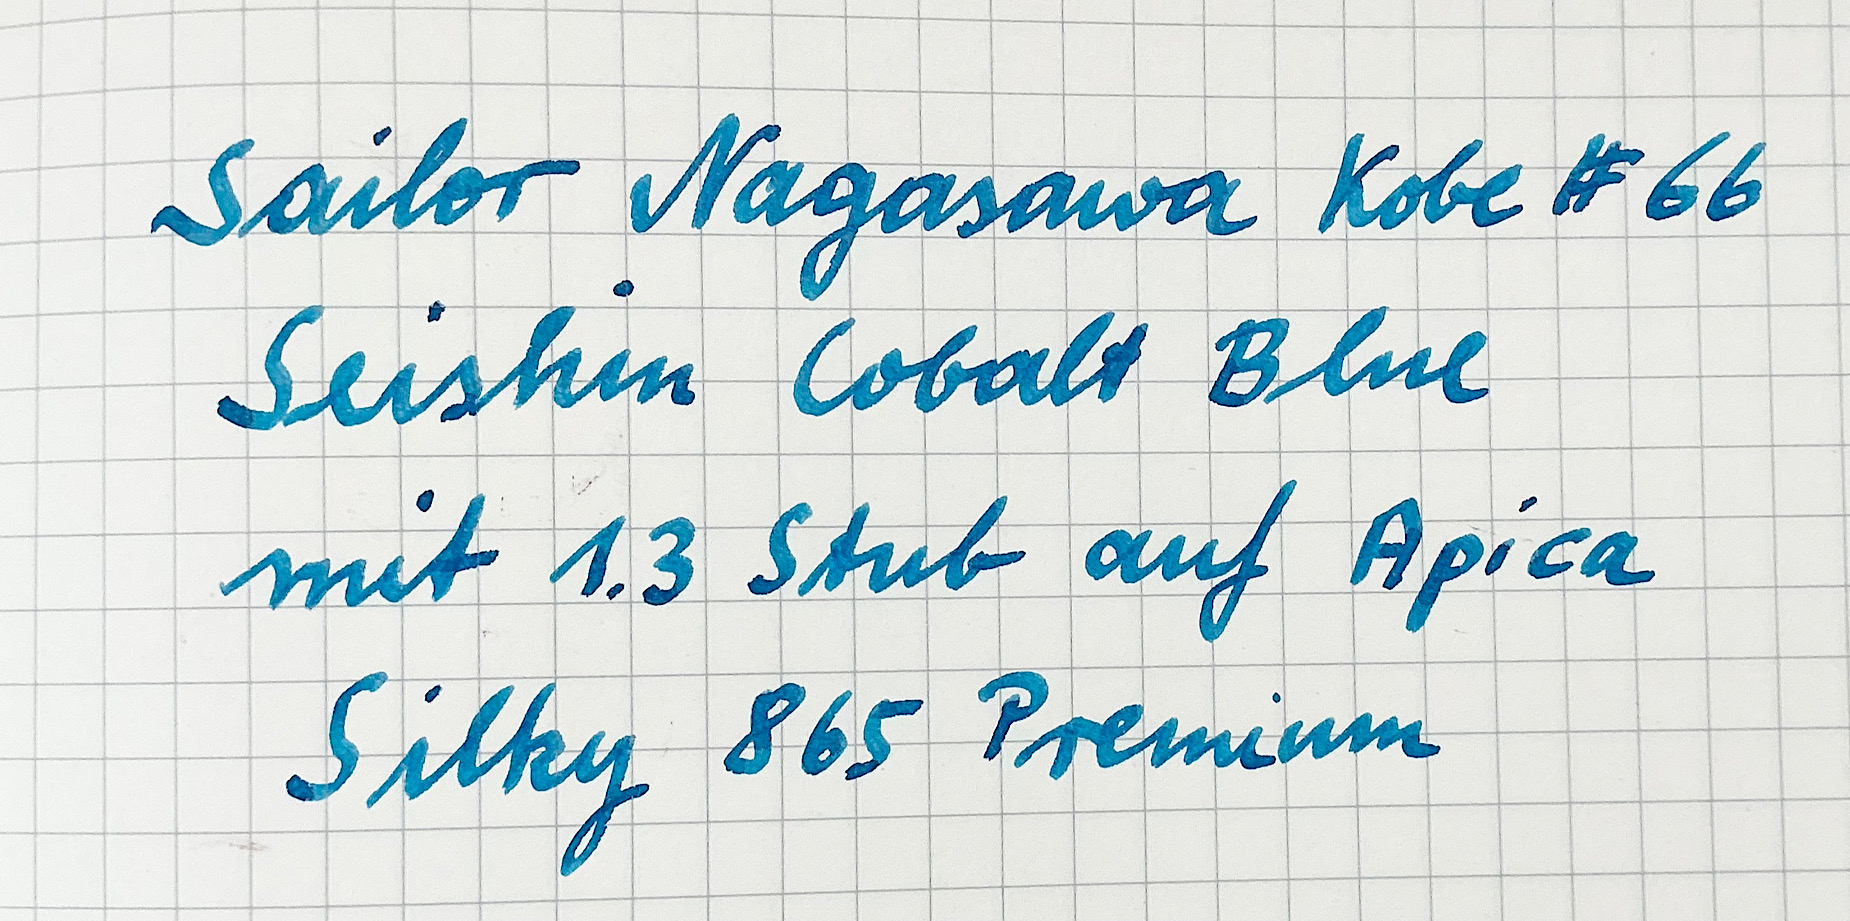 Sailor Nagasawa Kobe #66
Seishin Cobalt Blue
mit 1.3 Stub auf Apica
Silky 865 Premium